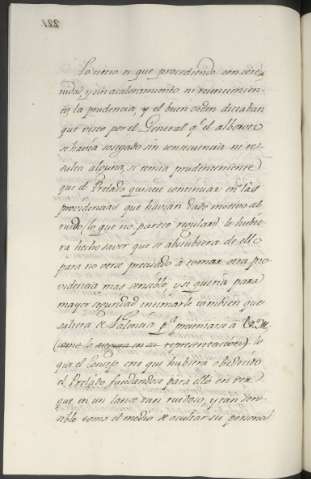 Lo cierto es que procediendo con sere-
nidad, y sin acaloramiento ni resentimien-
to, la prudencia, y el buen orden dictaban
que visto por el General qe. el alboroto
se havia sosegado sin consecuencia ni re-
sulta alguna, si temia prudentemente
que el Prelado quisiese continuar en las
providencias que havian dado motivo al
ruido, lo que no parece regular, le hubie-
ra hecho saver que se abstubiera de ello
para no verse precisado à tomar otra pro-
videncia mas sensible, y si queria para
mayor seguridad intimarle tambien que
saliera de Palencia pa. presentarse à
representacion) lo
que el Consejo cree que hubiera obedecido
el Prelado, fundandose para ello en ver
que en un lance tan ruidoso, y tan sen-
sible tomó el medio de ocultar su persona